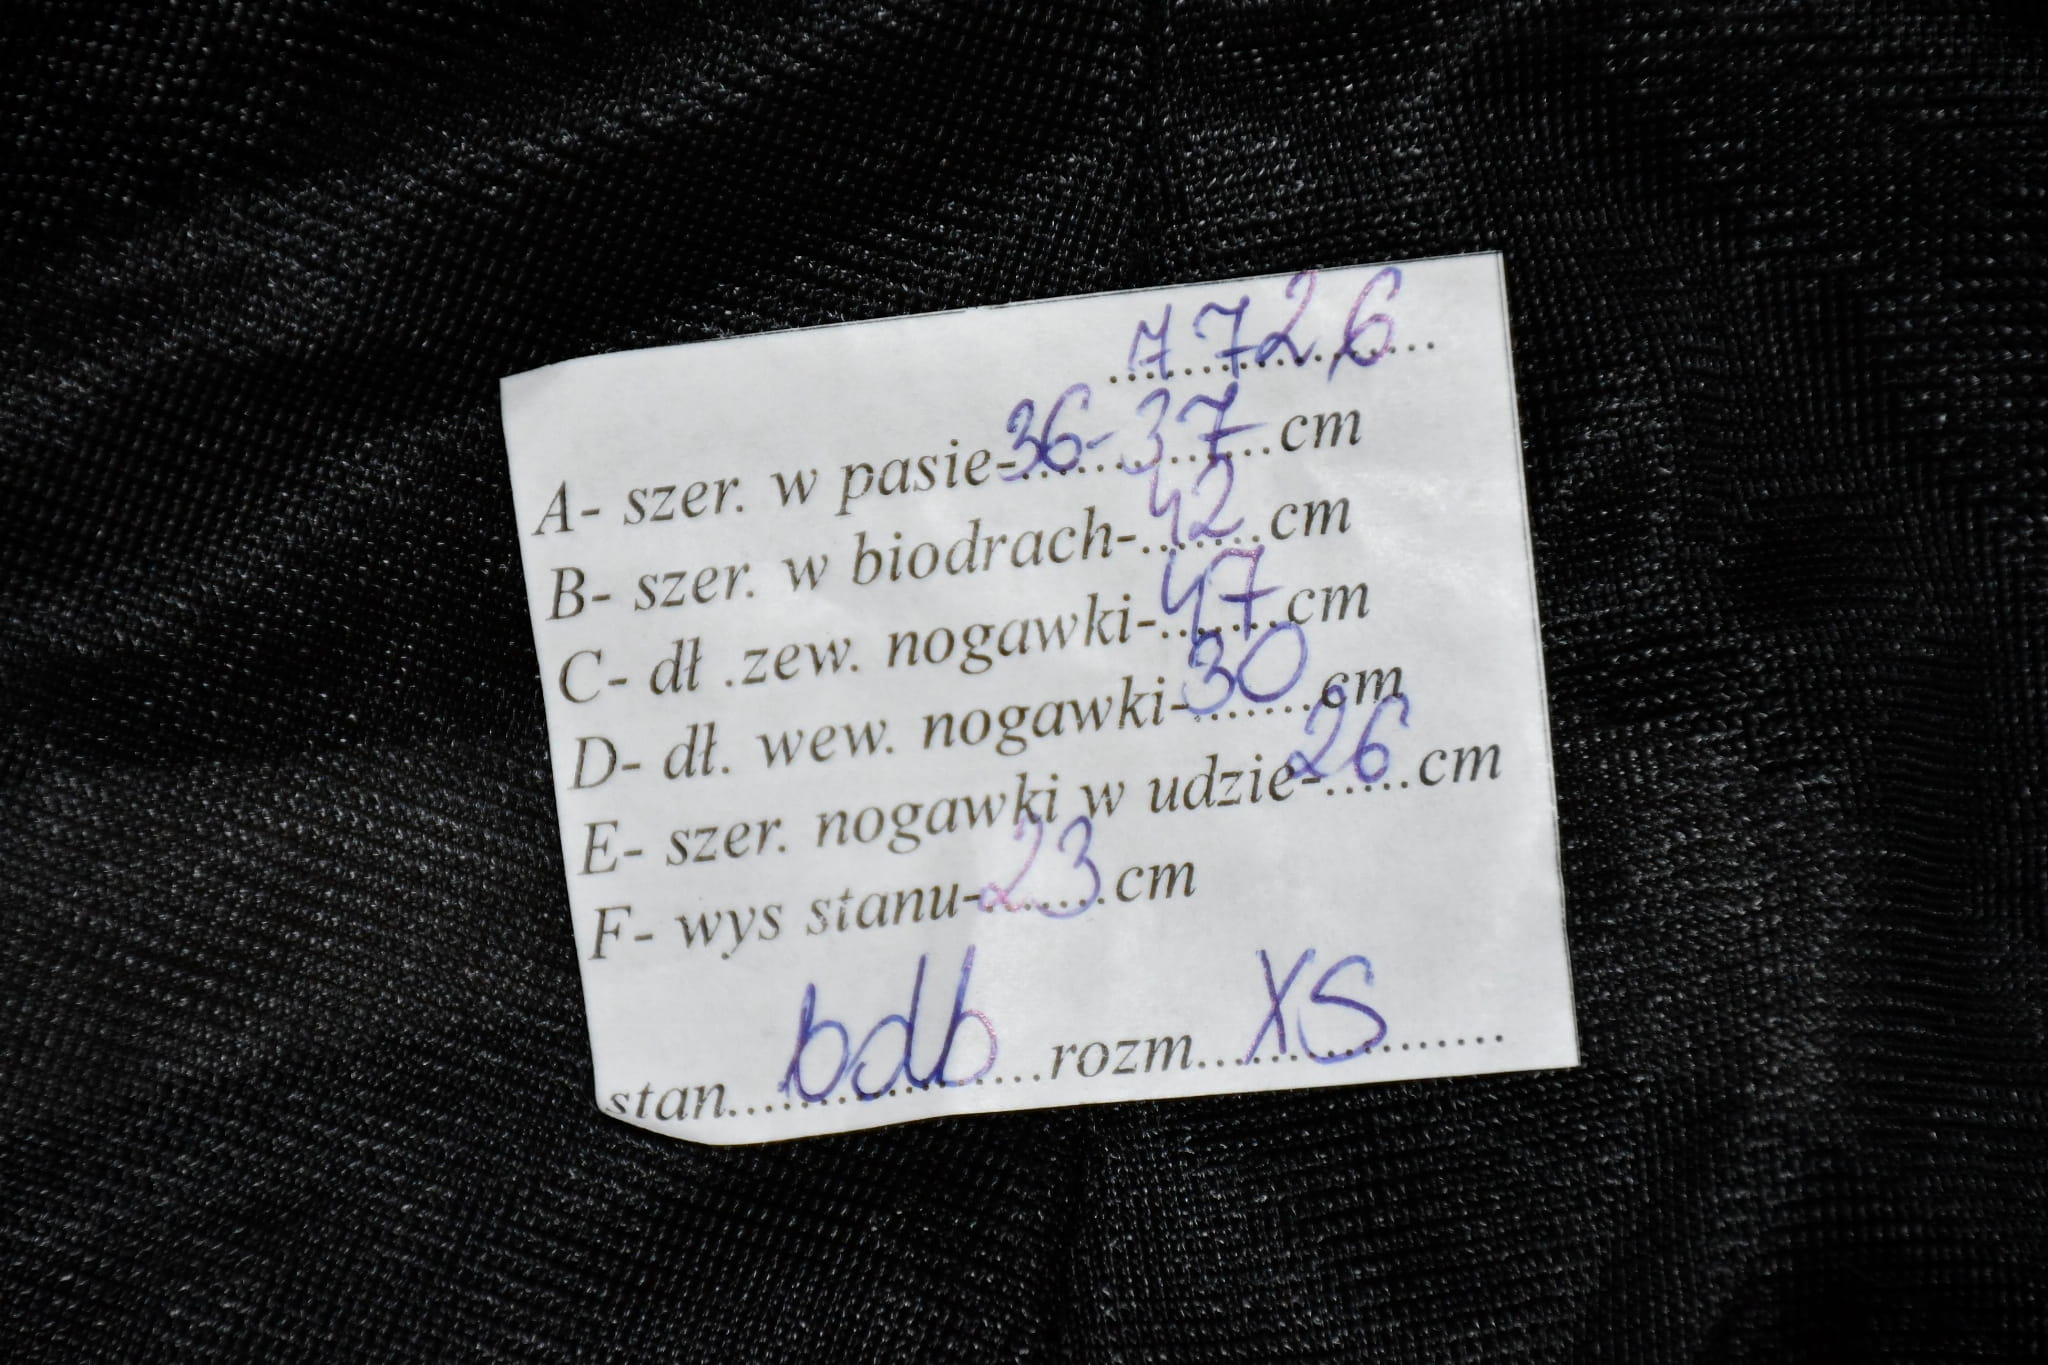 7726
A- szer. w pasie-36-37cm
B- szer. w biodrach-42cm
C- dł .zew. nogawki-47cm
D- dł. wew. nogawki-30cm
E- szer. nogawki w udzie-26cm
F- wys stanu-23cm
stan...bdb...rozm...XS...